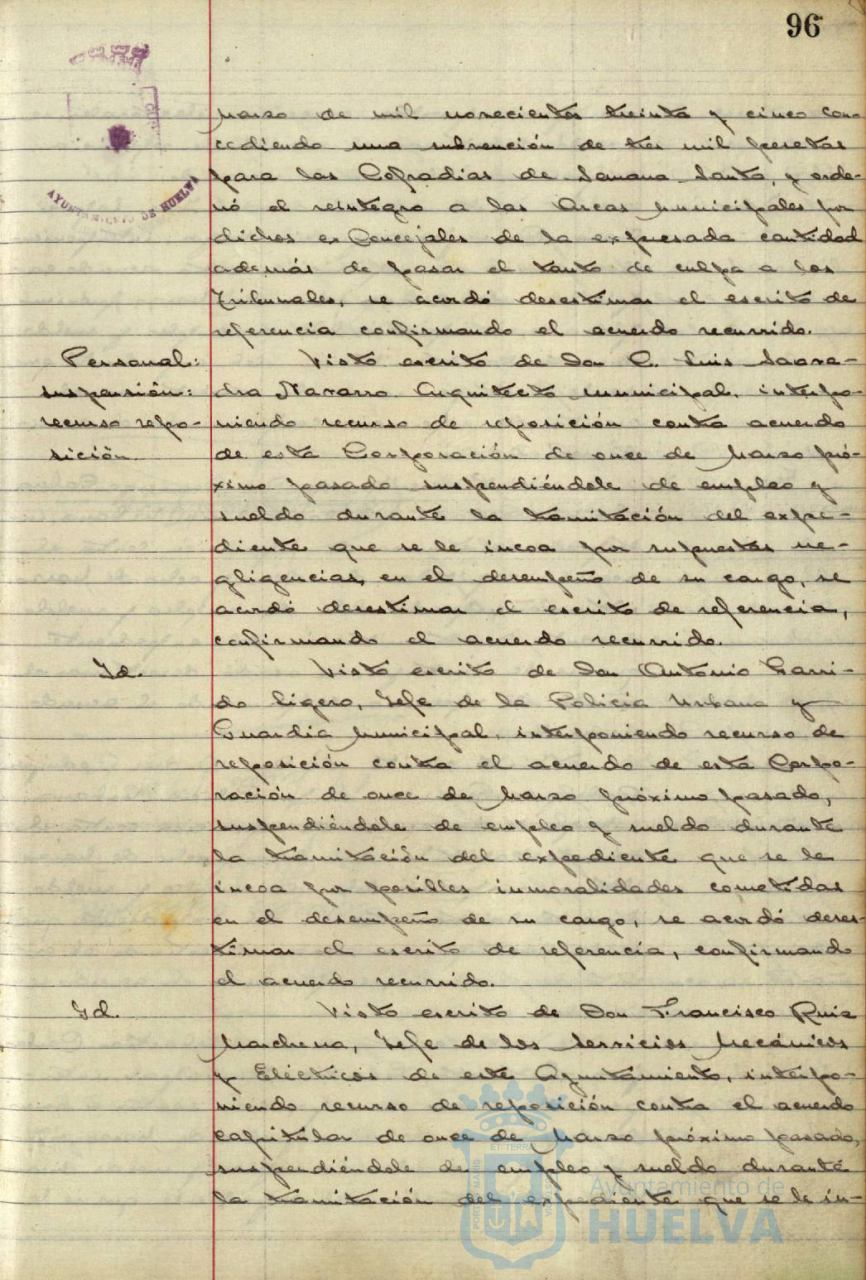 96
AYUNTAMIENTO DE HUELVA
Marzo de mil novecientos treinta y cinco con-
cediendo una subvención de tres mil pesetas
para las Cofradias de Semana Santa, y orde-
nó el reintegro a las Arcas Municipales por
dichos ex Concejales de la expresada cantidad
además de pasar el tanto de culpa a los
Tribunales, se acordó desestimar el escrito de
referencia confirmando el acuerdo recurrido.
Personal:
suspensión:
recurso repo-
sición.
Visto escrito de Don C. Luis Saave-
dra Navarro Arquitecto Municipal, interpo-
niendo recurso de reposición contra acuerdo
de esta Corporación de once de Marzo pró-
ximo pasado suspendiéndole de empleo y
sueldo durante la tramitación del expe-
diente que se le incoa por supuestas ne-
gligencias, en el desempeño de su cargo, se
acordó desestimar el escrito de referencia,
confirmando el acuerdo recurrido.
Id.
Visto escrito de Don Antonio Garri-
do Ligero, Jefe de la Policía Urbana y
Guardia Municipal, interponiendo recurso de
reposición contra el acuerdo de esta Corpo-
ración de once de Marzo próximo pasado,
suspendiéndole de empleo y sueldo durante
la tramitación del expediente que se le
incoa por posibles inmoralidades cometidas
en el desempeño de su cargo, se acordó deses-
timar el escrito de referencia, confirmando
el acuerdo recurrido.
Id.
Visto escrito de Don Francisco Ruiz
Marchena, Jefe de los Servicios Mecánicos
y Eléctricos de este Ayuntamiento, interpo-
niendo recurso de reposición contra el acuerdo
capitular de once de Marzo próximo pasado,
suspendiéndole de empleo y sueldo durante
la tramitación del expediente que se le in-
Ayuntamiento de
HUELVA